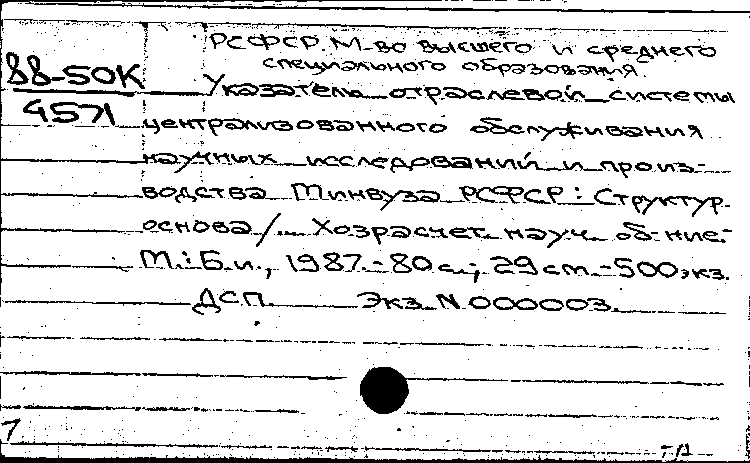 РСФСР. М-во высшего и среднего
специального образования.
88-50К
4571
Указатель отраслевой системы
централизованного обслуживания
научных исследований и произ-
водства Минвуза РСФСР: Структур.
основа/... Хозрасчет. науч. об-ние.-
М.: Б.и., 1987.-80с.; 29см.-500экз.
ДСП. Экз. N 000003.
7